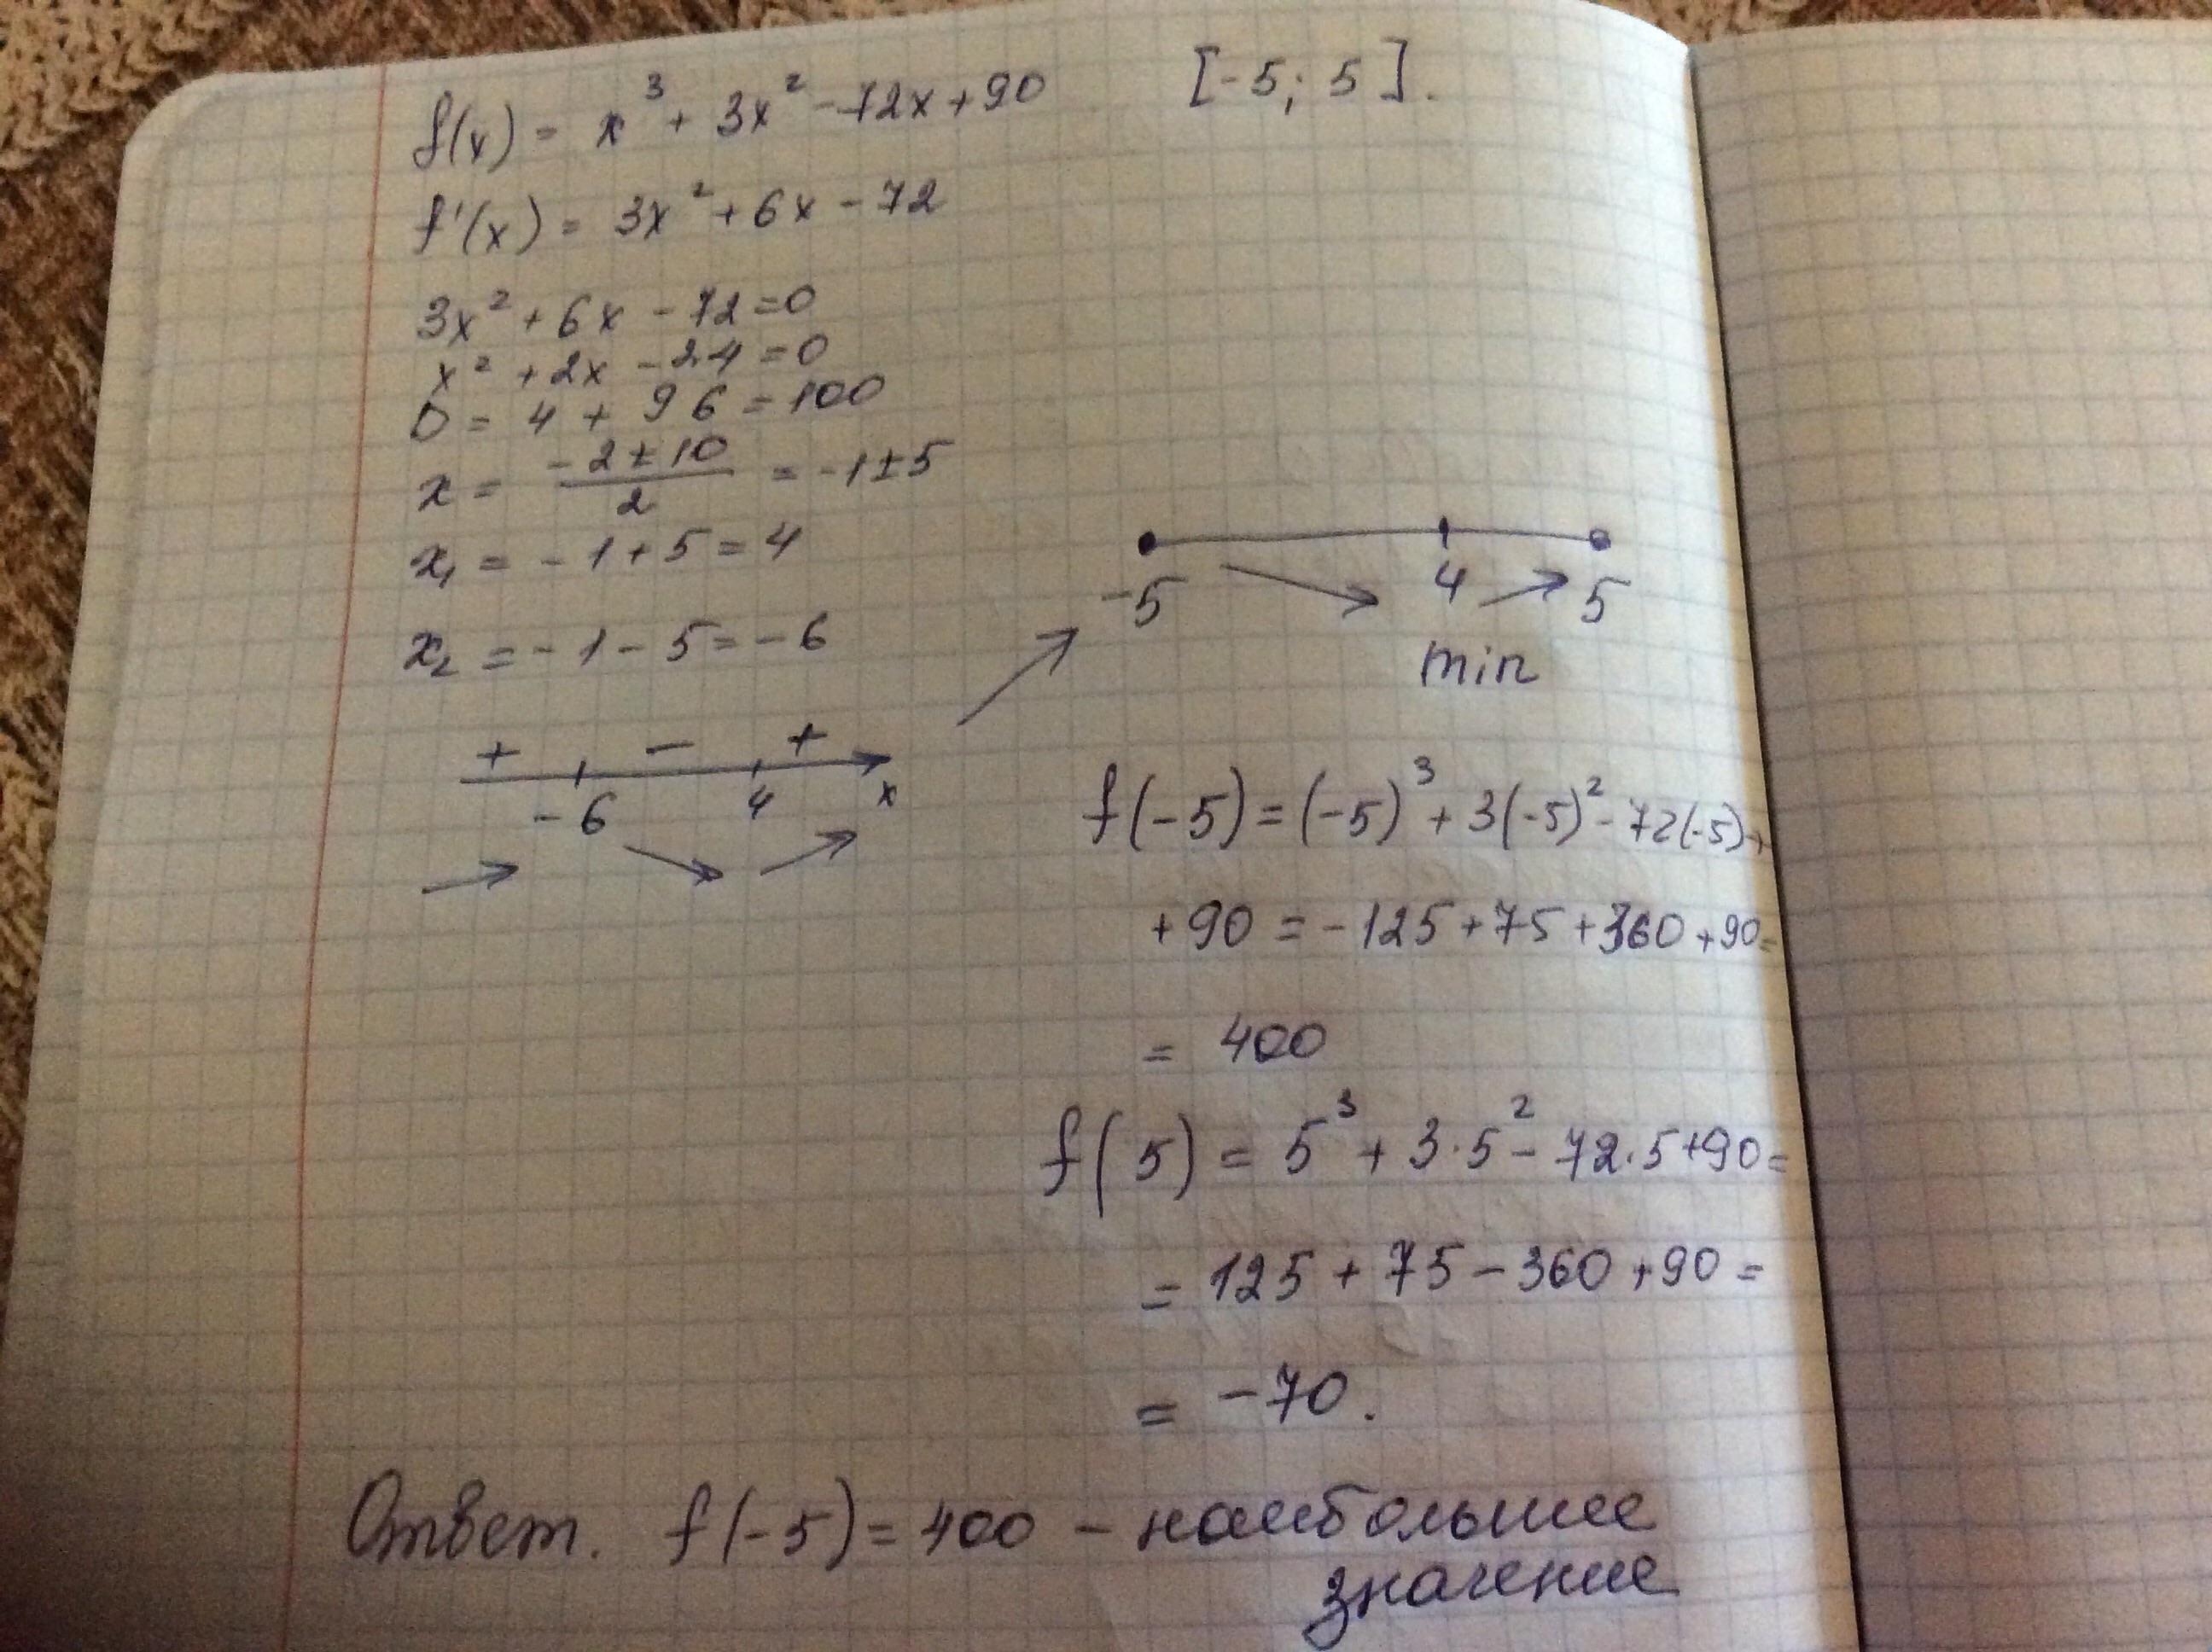 f(x) = x³ + 3x² - 72x + 90 [-5; 5].
f'(x) = 3x² + 6x - 72
3x² + 6x - 72 = 0
x² + 2x - 24 = 0
D = 4 + 96 = 100
x = (-2 ± 10)/2 = -1 ± 5
x₁ = -1 + 5 = 4
x₂ = -1 - 5 = -6
+ - +
-6 4 x
-5 4 5
min
f(-5) = (-5)³ + 3(-5)² - 72(-5) +
+ 90 = -125 + 75 + 360 + 90 =
= 400
f(5) = 5³ + 3·5² - 72·5 + 90 =
= 125 + 75 - 360 + 90 =
= -70.
Ответ. f(-5) = 400 - наибольшее
значение